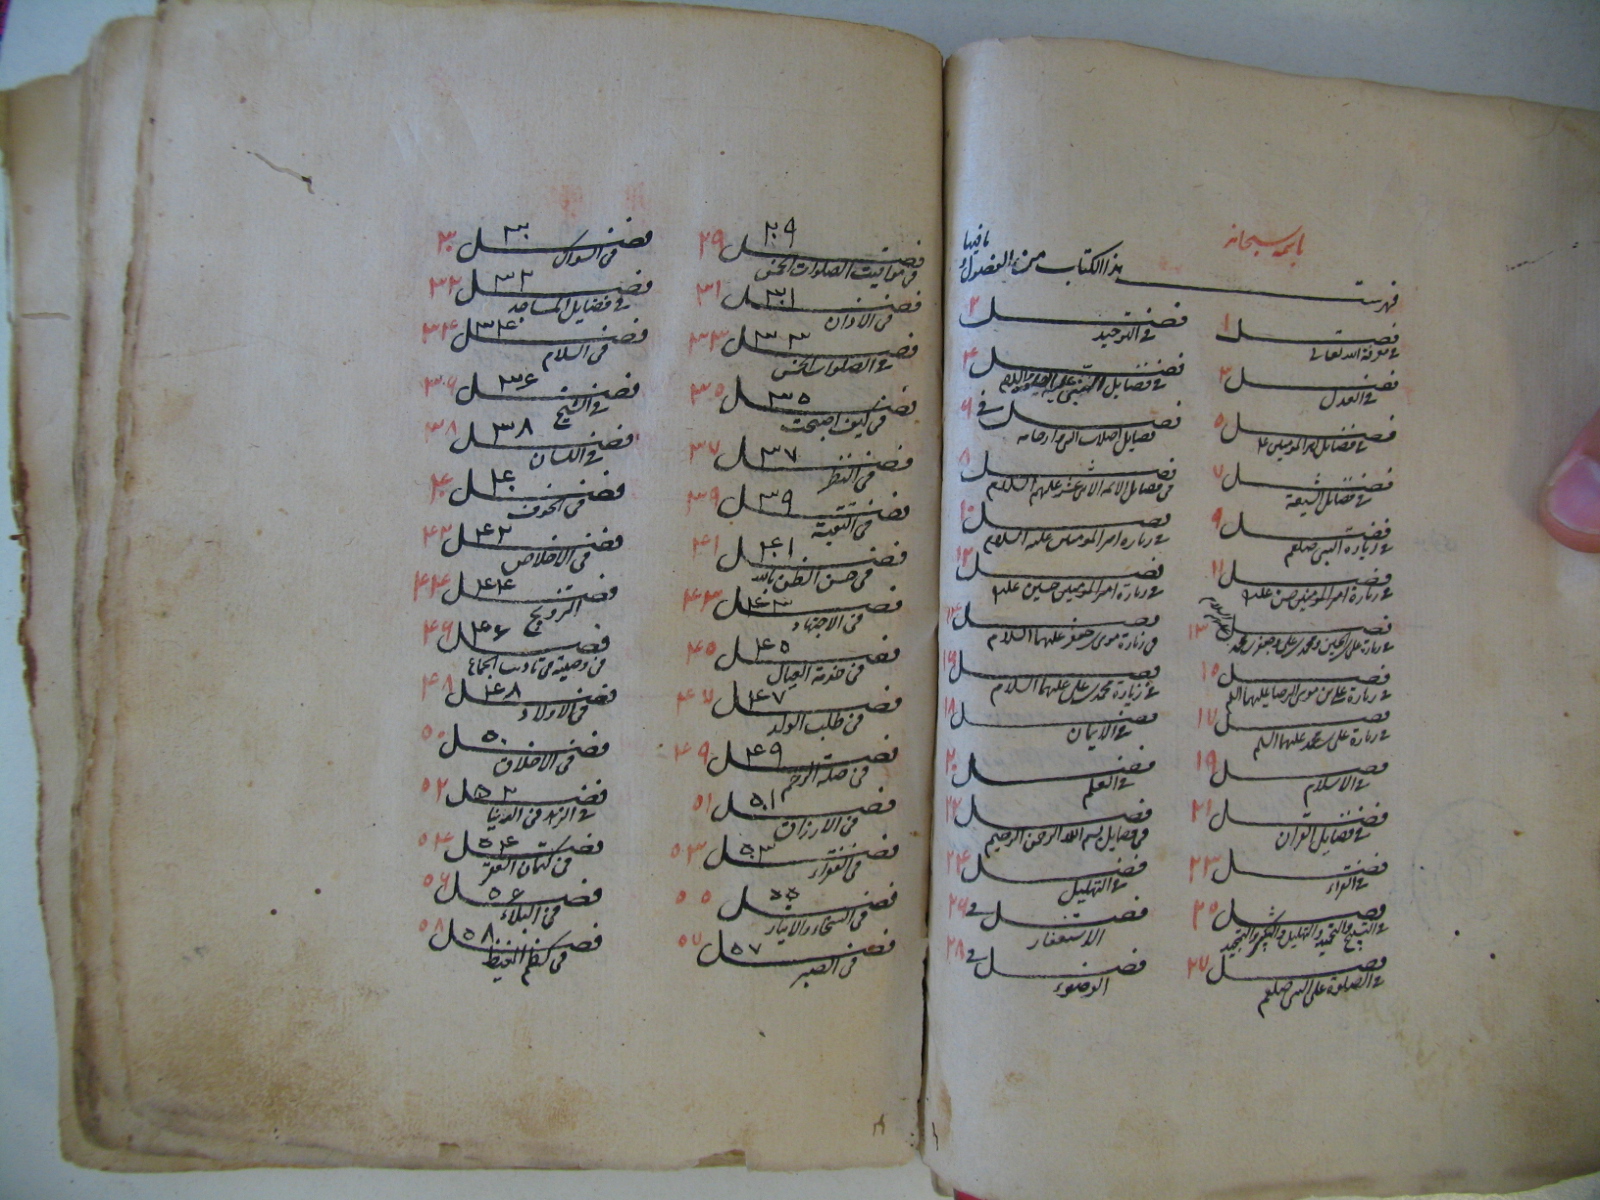 باسمه سبحانه
فهرست هذا الكتاب من الفصول
ما فيها
فصل ١ في معرفة الله تعالى
فصل ٢ في التوحيد
فصل ٣ في العدل
فصل ٤ في فضايل النبي عليه الصلوة والسلام
فصل ٥ في فضايل امير المومنين ع
فصل في ٦ فضايل
فصل ٧ في فضايل الشيعة
فصل ٨ في فضايل الائمه الاثنى عشر عليهم السلام
فصل ٩ في زيارة النبي صلعم
فصل ١٠ في زيارة امير المومنين عليه السلام
فصل ١١ في زيارة امير المومنين حسن عليه
فصل ١٢ في زيارة امير المومنين حسين عليه
فصل ١٣ في زيارة على بن الحسين ومحمد بن على وجعفر بن محمد عليهم السلام
فصل ١٤ في زيارة موسى بن جعفر عليهما السلام
فصل ١٥ في زيارة على بن موسى الرضا عليهما السلم
فصل ١٦ في زيارة محمد بن على عليهما السلام
فصل ١٧ في زيارة على بن محمد عليهما السلم
فصل ١٨ في الايمان
فصل ١٩ في الاسلام
فصل ٢٠ في العلم
فصل ٢١ في فضايل القرآن
فصل ٢٢ في فضايل بسم الله الرحمن الرحيم
فصل ٢٣ في القراءة
فصل ٢٤ في التهليل
فصل ٢٥ في التسبيح والتحميد والتهليل والتكبير والتمجيد
فصل في ٢٦ الاستغفار
فصل ٢٧ في الصلوة على النبي صلعم
فصل في ٢٨ الوضوء
فصل ٢٩ ٢٩ في مواقيت الصلوات الخمس
فصل ٣٠ ٣٠ في السواك
فصل ٣١ ٣١ في الاذان
فصل ٣٢ ٣٢ في فضايل المساجد
فصل ٣٣ ٣٣ في الصلوات الخمس
فصل ٣٤ ٣٤ في السلام
فصل ٣٥ ٣٥ في كيف اصبحت
فصل ٣٦ ٣٦ في الشيخ
فصل ٣٧ ٣٧ في النظر
فصل ٣٨ ٣٨ في اللسان
فصل ٣٩ ٣٩ في التقية
فصل ٤٠ ٤٠ في الخوف
فصل ٤١ ٤١ في حسن الظن بالله
فصل ٤٢ ٤٢ في الاخلاص
فصل ٤٣ ٤٣ في الاجتهاد
فصل ٤٤ ٤٤ التزويج
فصل ٤٥ ٤٥ في خدمة العيال
فصل ٤٦ ٤٦ في وصية في تاديب الجماع
فصل ٤٧ ٤٧ في طلب الولد
فصل ٤٨ ٤٨ في الاولاد
فصل ٤٩ ٤٩ في صلة الرحم
فصل ٥٠ ٥٠ في الاخلاق
فصل ٥١ ٥١ في الارزاق
فصل ٥٢ ٥٢ في الزهد في الدنيا
فصل ٥٣ ٥٣ في الفقراء
فصل ٥٤ ٥٤ في كتمان الفقر
فصل ٥٥ ٥٥ في السخاء والايثار
فصل ٥٦ ٥٦ في البلاء
فصل ٥٧ ٥٧ في الصبر
فصل ٥٨ ٥٨ في كظم الغيظ